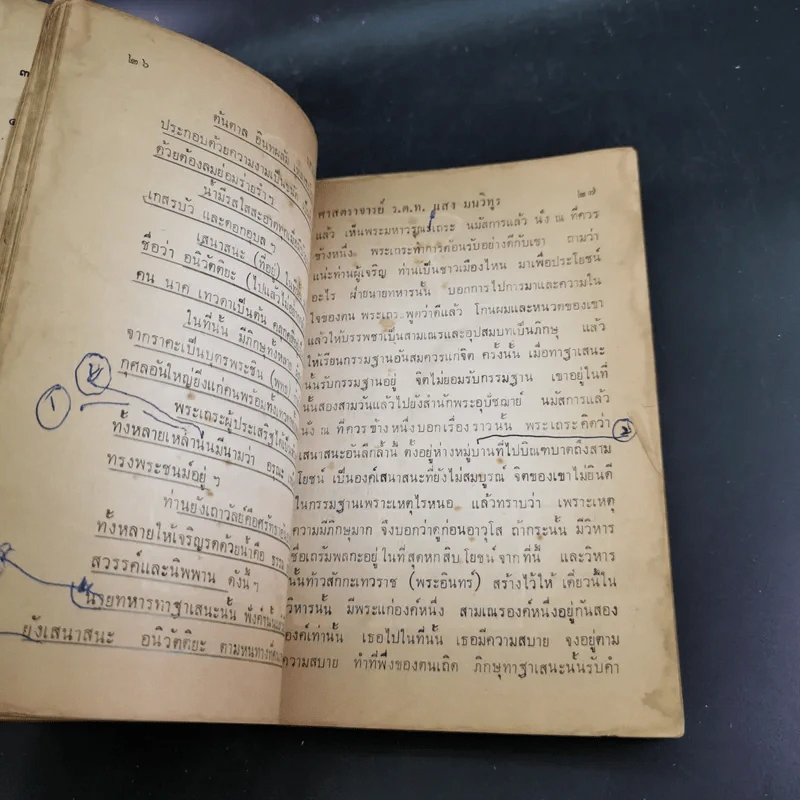 ๒๖
ต้นตาล อินทผลัม
ประกอบด้วยความงามเป็นชนิด
ด้วยต้องลมย่อมร่ายรำๆ
น้ำมีรสใสสะอาด
เกสรบัว และดอกอุบลๆ
เสนาสนะ (ที่อยู่)
ชื่อว่า อนิวัตติยะ (ไปแล้วไม่
คน นาค เทวดาเป็นต้น
ในที่นั้น มีภิกษุทั้งหลาย
จากราคะเป็นบุตรพระชิน (พุทธ)
กุศลอันใหญ่ยิ่งแก่คนพร้อมทั้งเทวดา
พระเถระผู้ประเสริฐ
ทั้งหลายเหล่านั้นมีนามว่า
ทรงพระชนม์อยู่ ๆ
ท่านยังเถาวัลย์คือศรัทธา
ทั้งหลายให้เจริญรดด้วยน้ำคือ ธรรม
สวรรค์และนิพพาน ดังนี้ๆ
นายทหารทาฐาเสนะนั้น ฟังคำนั้น
ยังเสนาสนะ อนิวัตติยะ ตามหนทาง
๑
๒๗
ศาสตราจารย์ ร.ต.ท. แสง มนวิทูร
แล้ว เห็นพระมหาวรุณเถระ นมัสการแล้ว นั่ง ณ ที่ควร
ข้างหนึ่ง พระเถระทำการต้อนรับอย่างดีกับเขา ถามว่า
แน่ะท่านผู้เจริญ ท่านเป็นชาวเมืองไหน มาเพื่อประโยชน์
อะไร ฝ่ายนายทหารนั้น บอกการไปการมาและความใน
ใจของตน พระเถระพูดว่าดีแล้ว โกนผมและหนวดของเขา
แล้วให้บรรพชาเป็นสามเณรและอุปสมบทเป็นภิกษุ แล้ว
ให้เรียนกรรมฐานอันสมควรแก่จิต ครั้งนั้น เมื่อทาฐาเสนะ
นั้นรับกรรมฐานอยู่ จิตไม่ยอมรับกรรมฐาน เขาอยู่ในที่
นั้นสองสามวันแล้วไปยังสำนักพระอุปัชฌาย์ นมัสการแล้ว
นั่ง ณ ที่ควร ข้างหนึ่งบอกเรื่องราวนั้น พระเถระคิดว่า
๒
เสนาสนะอันลึกล้ำนี้ ตั้งอยู่ห่างหมู่บ้านที่ไปบิณฑบาตถึงสาม
โยชน์ เป็นองค์เสนาสนะที่ยังไม่สมบูรณ์ จิตของเขาไม่ยินดี
ในกรรมฐานเพราะเหตุไรหนอ แล้วทราบว่า เพราะเหตุ
ความมีภิกษุมาก จึงบอกว่าดูก่อนอาวุโส ถ้ากระนั้น มีวิหาร
ชื่อเถรัมพลกะอยู่ ในที่สุดหกสิบโยชน์จากที่นี้ และวิหาร
นั้นท้าวสักกะเทวราช (พระอินทร์) สร้างไว้ให้ เดี๋ยวนี้ใน
วิหารนั้น มีพระแก่องค์หนึ่ง สามเณรองค์หนึ่งอยู่กันสอง
องค์เท่านั้น เธอไปในที่นั้น เธอมีความสบาย จงอยู่ตาม
ความสบาย ทำที่พึ่งของตนเถิด ภิกษุทาฐาเสนะนั้นรับคำ